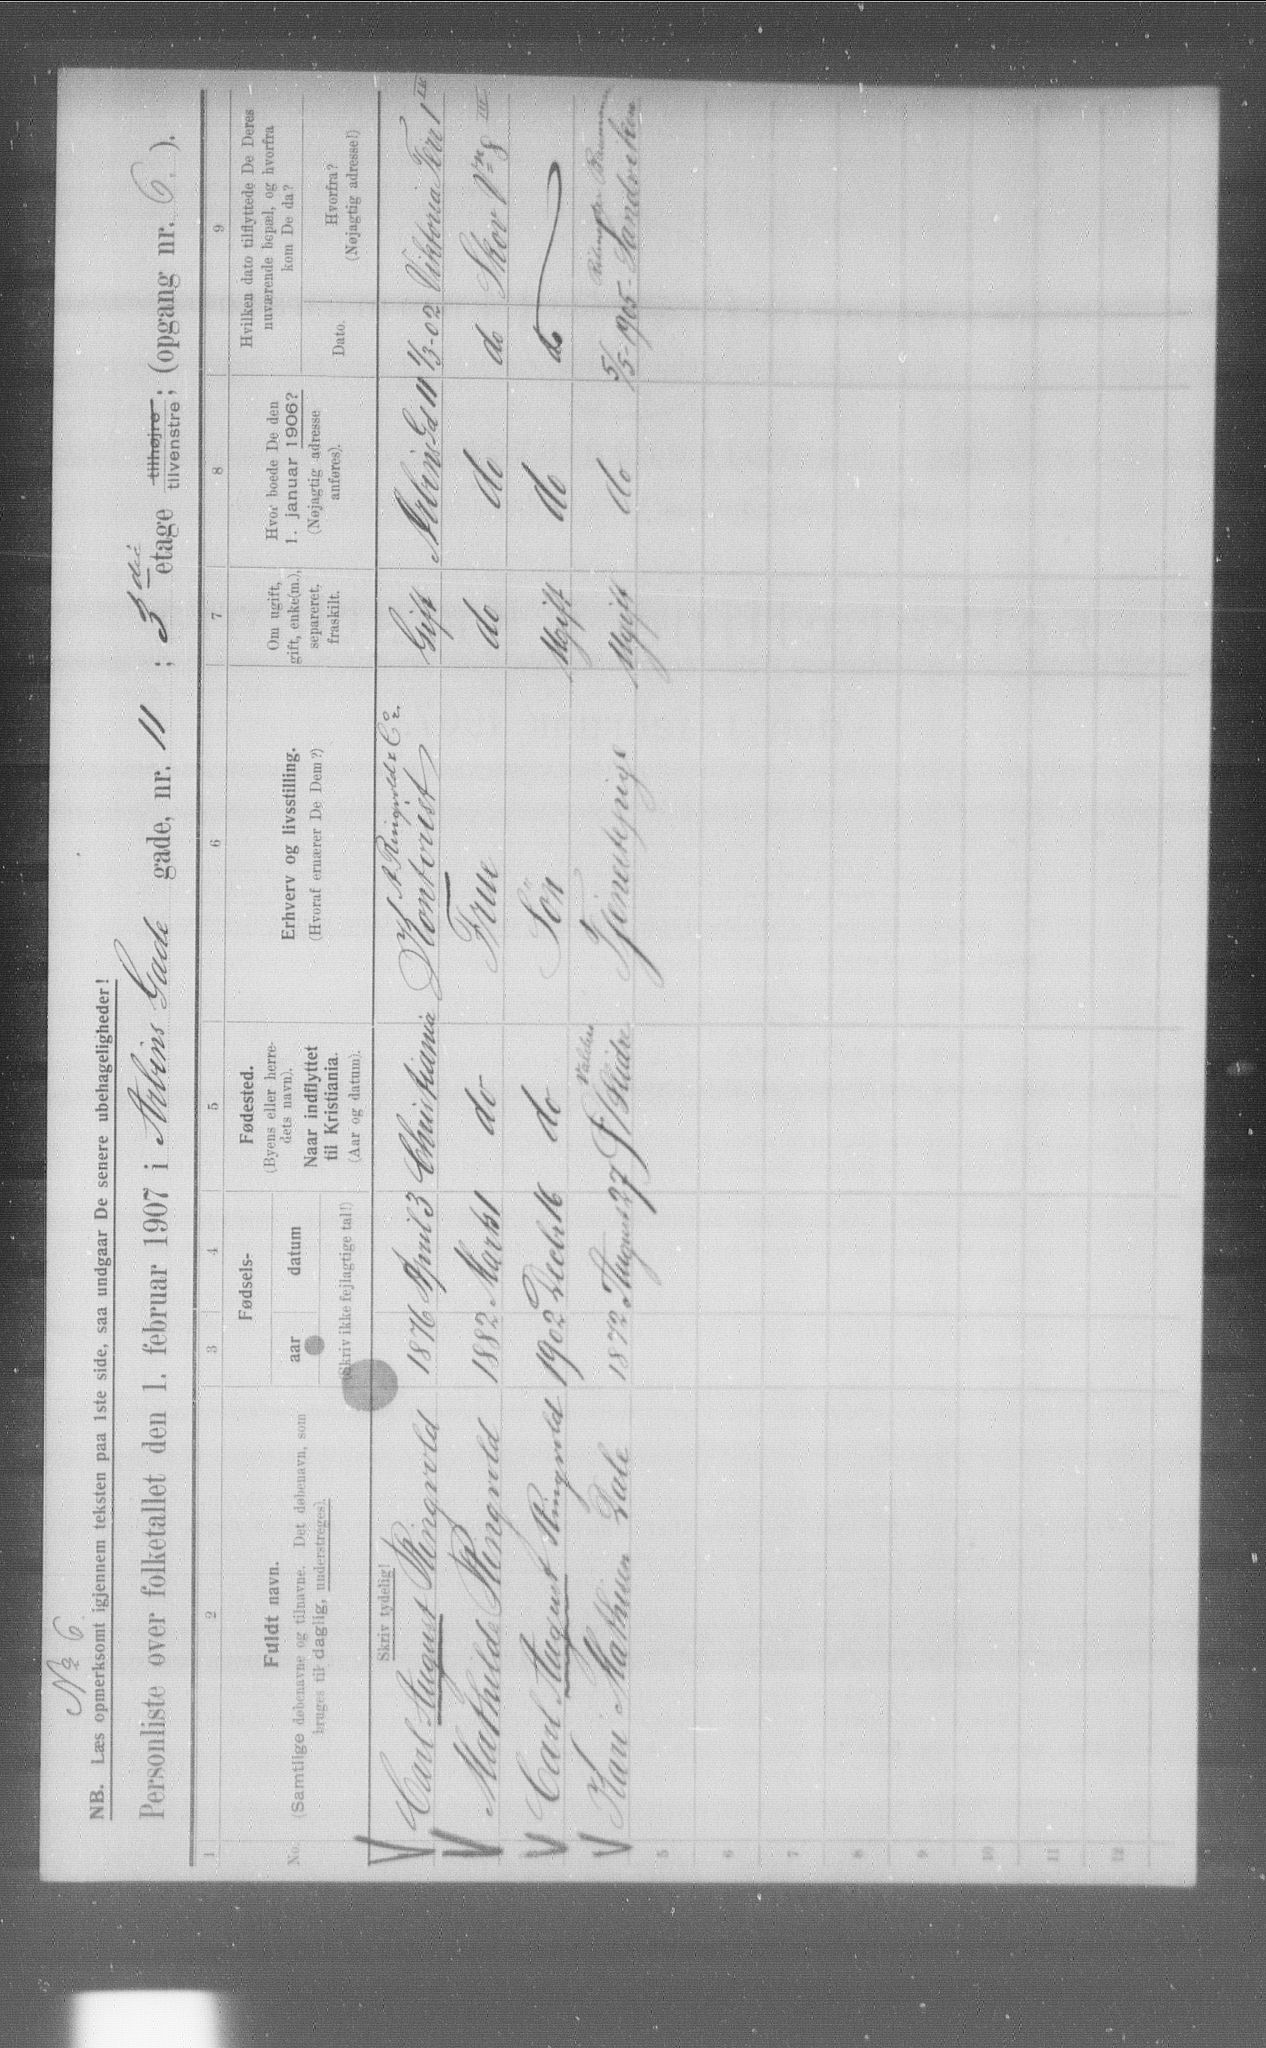 No 6
NB. Læs opmerksomt igjennem teksten paa 1ste side, saa undgaar De senere ubehageligheder!
Personliste over folketallet den 1. februar 1907 i Arbins Gade gade, nr. 11 ; 3die etage tilhøjre tilvenstre; (opgang nr. 6. ).
1 2 3 4 5 6 7 8 9
No.
Fuldt navn.
(Samtlige døbenavne og tilnavne. Det døbenavn, som
bruges til daglig, understreges).
Fødsels-
aar datum
(Skriv ikke fejlagtige tal!)
Fødested.
(Byens eller herre-
dets navn).
Naar indflyttet
til Kristiania.
(Aar og datum).
Erhverv og livsstilling.
(Hvoraf ernærer De Dem?)
Om ugift,
gift, enke(m.),
separeret,
fraskilt.
Hvor boede De den
1. januar 1906?
(Nøjagtig adresse
anføres).
Hvilken dato tilflyttede De Deres
nuværende bopæl, og hvorfra
kom De da?
Dato.
Hvorfra?
(Nøjagtig adresse!)
Skriv tydelig!
A Ringvold & Co.
Carl August Ringvold 1876 April 3 Christiania Kontorist Gift Arbins Gd 11 1/3-02 Viktoria Terr 1 III
Mathilde Ringvold 1882 Marts 1 do Frue do do do Skov 8 III
Carl August Ringvold 1902 Decbr 16 do Søn Ugift do do
Valders
Kari Mathisen Dale 1872 August 27 Slidre Tjenestepige Ugift do 5/5-1905- Sandviken
5
6
7
8
9
10
11
12